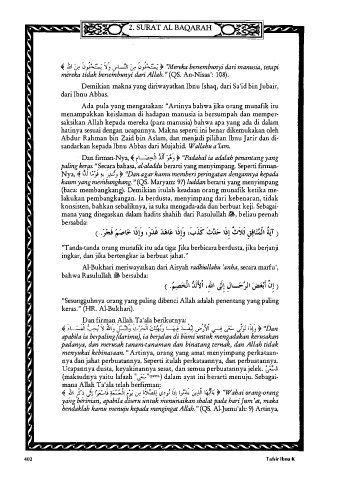 2. SURAT AL BAQARAH
﴿ يَسْتَخْفُونَ مِنَ النَّاسِ وَلَا يَسْتَخْفُونَ مِنَ اللَّهِ ﴾ "Mereka bersembunyi dari manusia, tetapi
mereka tidak bersembunyi dari Allah." (QS. An-Nisaa': 108).
Demikian makna yang diriwayatkan Ibnu Ishaq, dari Sa'id bin Jubair,
dari Ibnu Abbas.
Ada pula yang mengatakan: "Artinya bahwa jika orang munafik itu
menampakkan keislaman di hadapan manusia ia bersumpah dan memper-
saksikan Allah kepada mereka (para manusia) bahwa apa yang ada di dalam
hatinya sesuai dengan ucapannya. Makna seperti ini benar dikemukakan oleh
Abdur Rahman bin Zaid bin Aslam, dan menjadi pilihan Ibnu Jarir dan di-
sandarkan kepada Ibnu Abbas dari Mujahid. Wallahu a'lam.
Dan firman-Nya, ﴿ وَهُوَ أَلَدُّ الْخِصَامِ ﴾ "Padahal ia adalah penantang yang
paling keras." Secara bahasa, al-aladdu berarti yang menyimpang. Seperti firman-
Nya, ﴿ وَتُنذِرَ بِهِ قَوْمًا لُّدًّا ﴾ "Dan agar kamu memberi peringatan dengannya kepada
kaum yang membangkang." (QS. Maryam: 97) luddan berarti yang menyimpang
(baca: membangkang). Demikian itulah keadaan orang munafik ketika me-
lakukan pembangkangan. Ia berdusta, menyimpang dari kebenaran, tidak
konsisten, bahkan sebaliknya, ia suka mengada-ada dan berbuat keji. Sebagai-
mana yang ditegaskan dalam hadits shahih dari Rasulullah ﷺ, beliau pernah
bersabda:
( آيَةُ الْمُنَافِقِ ثَلَاثٌ إِذَا حَدَّثَ كَذَبَ، وَإِذَا عَاهَدَ غَدَرَ، وَإِذَا خَاصَمَ فَجَرَ. )
"Tanda-tanda orang munafik itu ada tiga: Jika berbicara berdusta, jika berjanji
ingkar, dan jika bertengkar ia berbuat jahat."
Al-Bukhari meriwayatkan dari Aisyah radhiallahu 'anha, secara marfu',
bahwa Rasulullah ﷺ bersabda:
( إِنَّ أَبْغَضَ الرِّجَالِ إِلَى اللهِ، الْأَلَدُّ الْخَصِيمُ. )
"Sesungguhnya orang yang paling dibenci Allah adalah penentang yang paling
keras." (HR. Al-Bukhari).
Dan firman Allah Ta'ala berikutnya:
﴿ وَإِذَا تَوَلَّىٰ سَعَىٰ فِي الْأَرْضِ لِيُفْسِدَ فِيهَا وَيُهْلِكَ الْحَرْثَ وَالنَّسْلَ وَاللَّهُ لَا يُحِبُّ الْفَسَادَ ﴾ "Dan
apabila ia berpaling (darimu), ia berjalan di bumi untuk mengadakan kerusakan
padanya, dan merusak tanam-tanaman dan binatang ternak, dan Allah tidak
menyukai kebinasaan." Artinya, orang yang amat menyimpang perkataan-
nya dan jahat perbuatannya. Seperti itulah perkataannya, dan perbuatannya.
Ucapannya dusta, keyakinannya sesat, dan semua perbuatannya jelek. السَّعْيُ
(maksudnya yaitu lafazh "سَعَى") dalam ayat ini berarti menuju. Sebagai-
mana Allah Ta'ala telah berfirman:
﴿ يَاأَيُّهَا الَّذِينَ ءَامَنُوا إِذَا نُودِيَ لِلصَّلَاةِ مِن يَوْمِ الْجُمُعَةِ فَاسْعَوْا إِلَىٰ ذِكْرِ اللَّهِ ﴾ "Wahai orang-orang
yang beriman, apabila diseru untuk menunaikan shalat pada hari Jum'at, maka
hendaklah kamu menuju kepada mengingat Allah." (QS. Al-Jumu'ah: 9) Artinya,
402
Tafsir Ibnu K